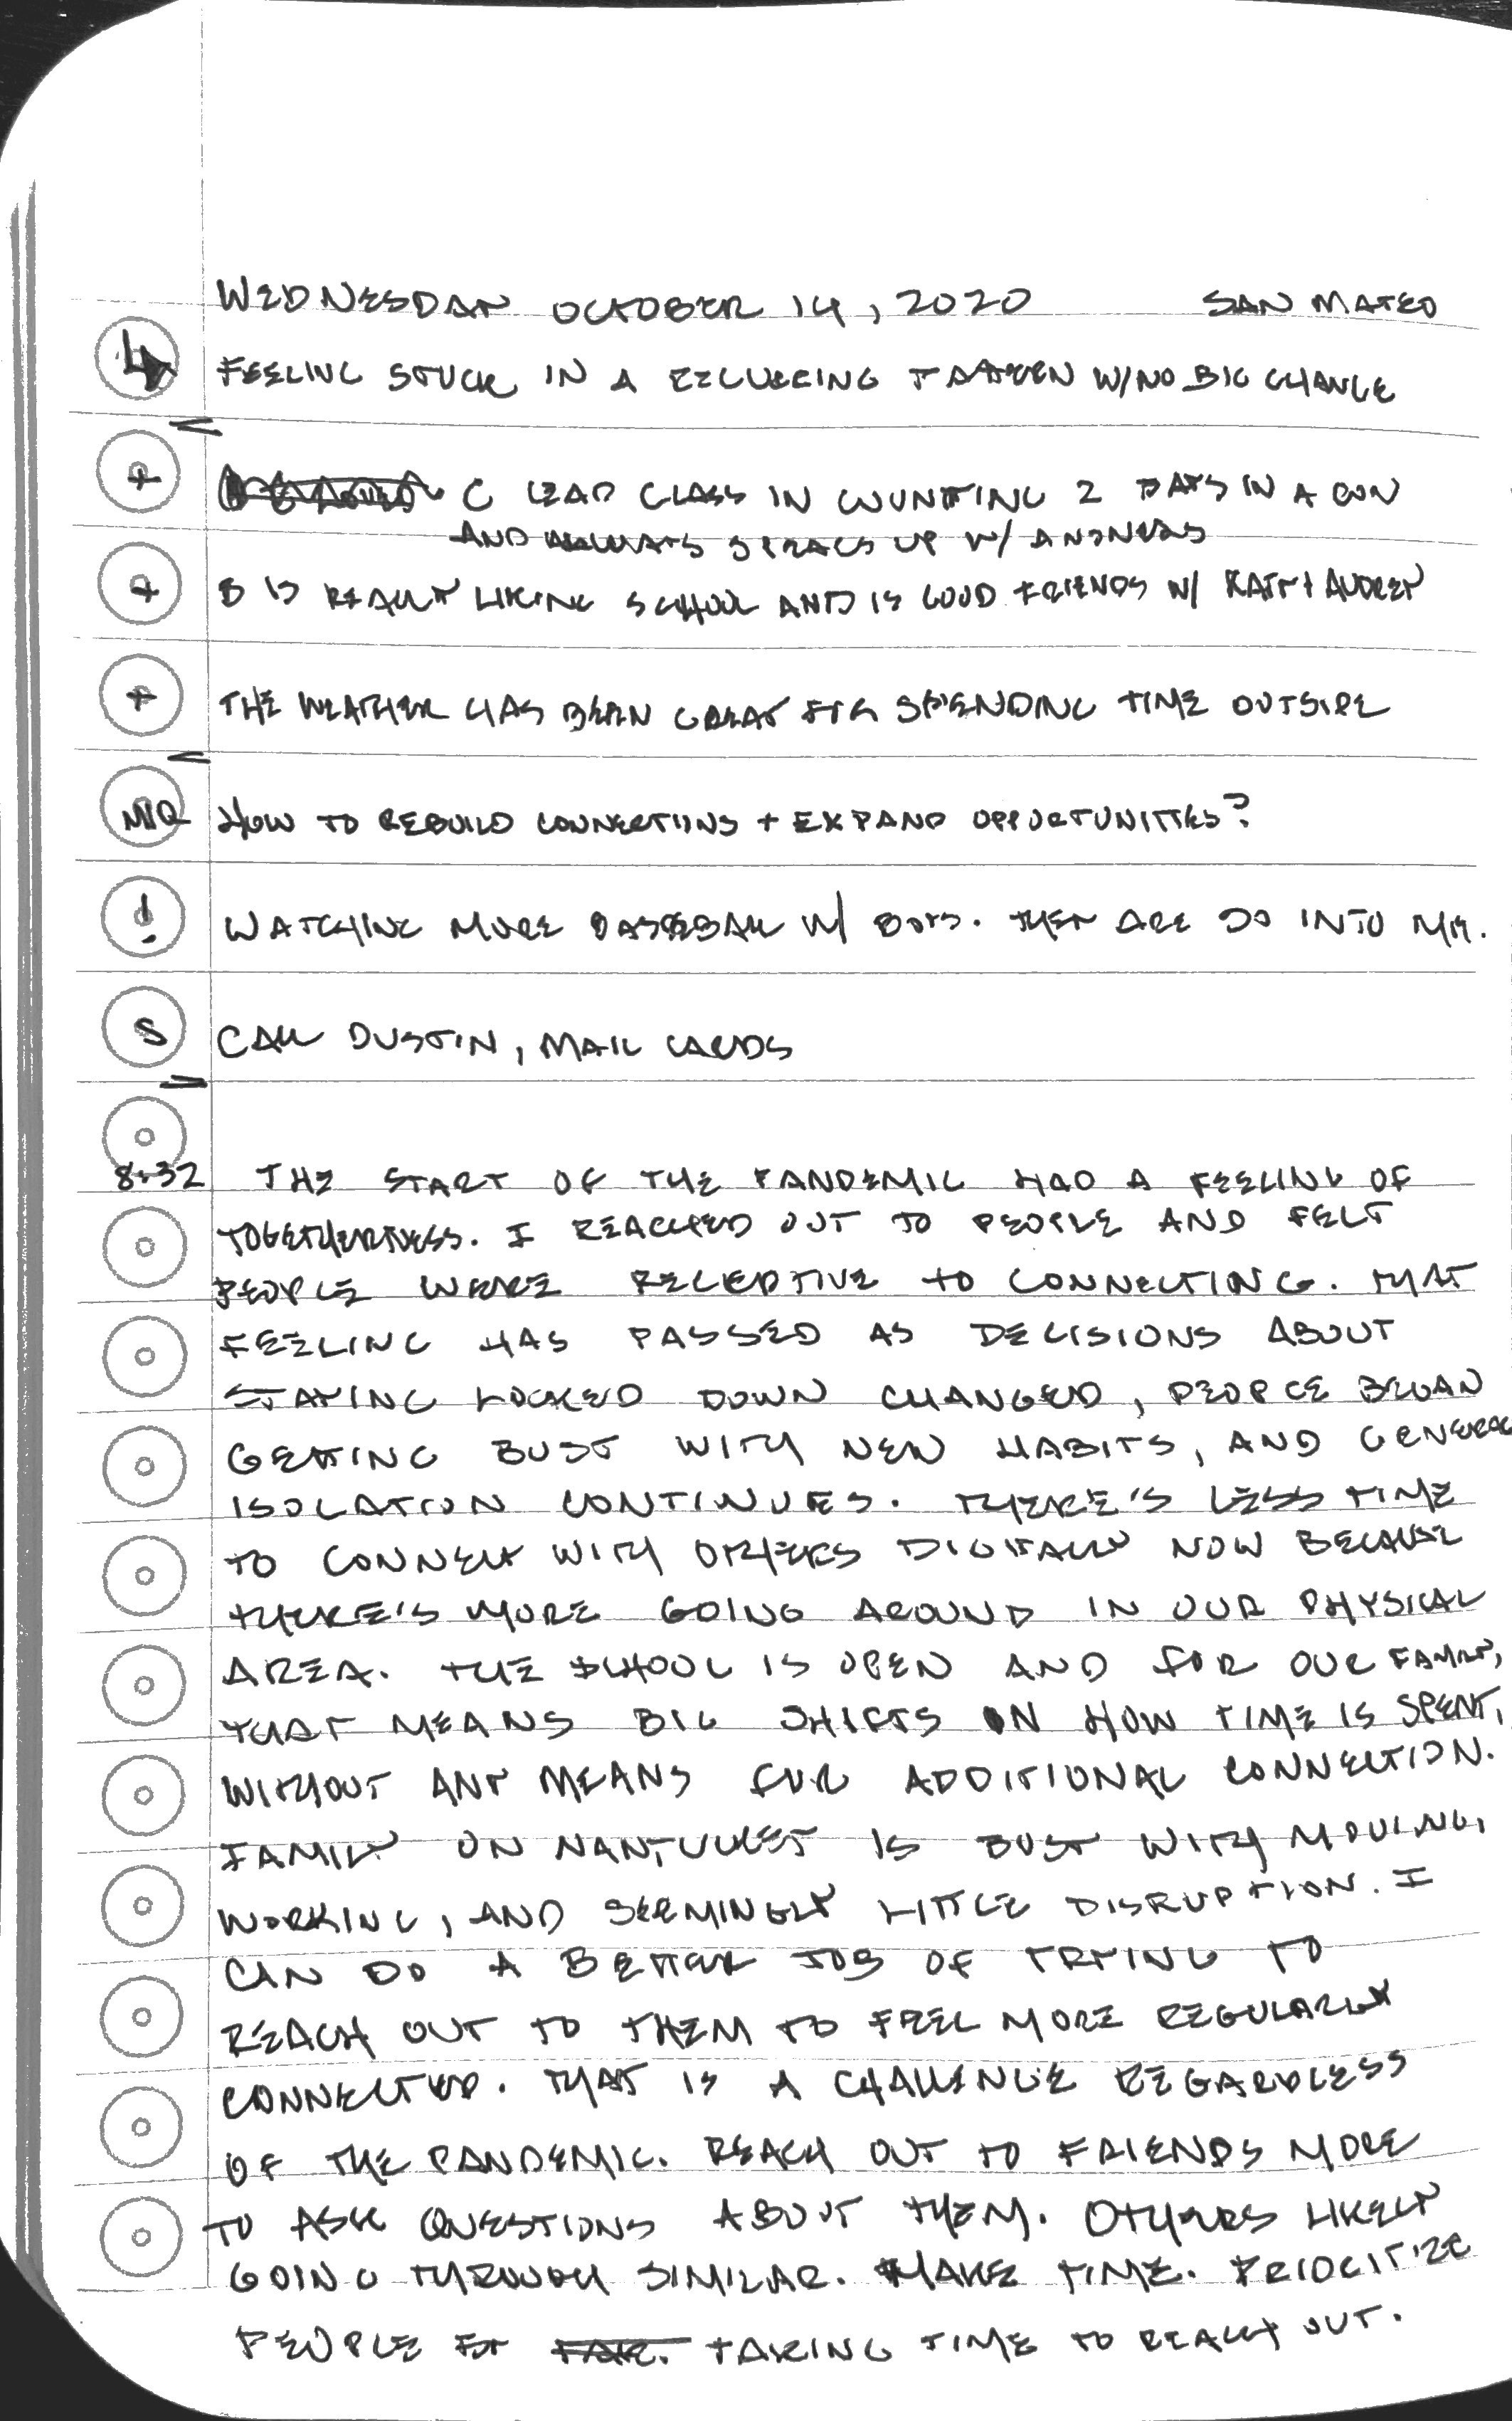 WEDNESDAY OCTOBER 14, 2020 SAN MATEO
FEELING STUCK IN A RECURRING PATTERN W/NO BIG CHANGE
+ C LEAD CLASS IN COUNTING 2 DAYS IN A ROW
AND ALWAYS SPEAKS UP W/ ANSWERS
+ B IS REALLY LIKING SCHOOL AND IS GOOD FRIENDS W/ KATY + AUDREY
+ THE WEATHER HAS BEEN GREAT FOR SPENDING TIME OUTSIDE
MIQ HOW TO REBUILD CONNECTIONS + EXPAND OPPORTUNITIES?
! WATCHING MORE BASEBALL W/ BOYS. THEY ARE SO INTO IT.
S CALL DUSTIN, MAIL CARDS
8:32 THE START OF THE PANDEMIC HAD A FEELING OF
TOGETHERNESS. I REACHED OUT TO PEOPLE AND FELT
PEOPLE WERE RECEPTIVE TO CONNECTING. THAT
FEELING HAS PASSED AS DECISIONS ABOUT
STAYING LOCKED DOWN CHANGED, PEOPLE BEGAN
GETTING BUSY WITH NEW HABITS, AND GENERAL
ISOLATION CONTINUES. THERE'S LESS TIME
TO CONNECT WITH OTHERS DIGITALLY NOW BECAUSE
THERE'S MORE GOING AROUND IN OUR PHYSICAL
AREA. THE SCHOOL IS OPEN AND FOR OUR FAMILY,
THAT MEANS BIG SHIFTS ON HOW TIME IS SPENT,
WITHOUT ANY MEANS FOR ADDITIONAL CONNECTION.
FAMILY ON NANTUCKET IS BUSY WITH MOVING,
WORKING, AND SEEMINGLY LITTLE DISRUPTION. I
CAN DO A BETTER JOB OF TRYING TO
REACH OUT TO THEM TO FEEL MORE REGULARLY
CONNECTED. THAT IS A CHALLENGE REGARDLESS
OF THE PANDEMIC. REACH OUT TO FRIENDS MORE
TO ASK QUESTIONS ABOUT THEM. OTHERS LIKELY
GOING THROUGH SIMILAR. MAKE TIME. PRIORITIZE
PEOPLE BY TAKING TIME TO REACH OUT.